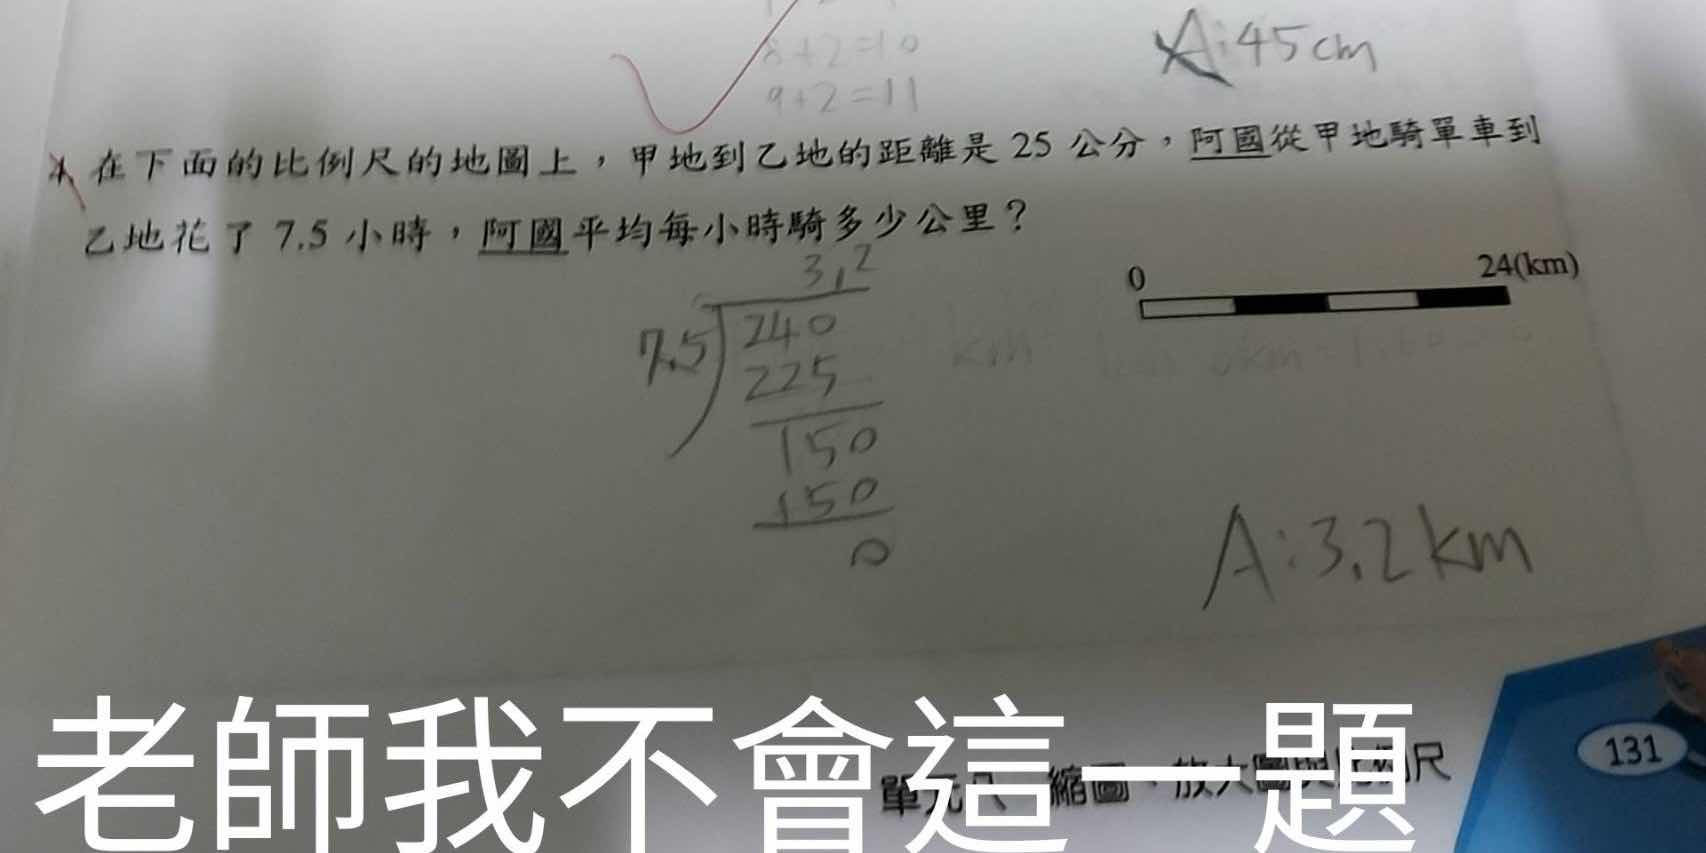 8+2=10
9+2=11
A:45cm
4. 在下面的比例尺的地圖上，甲地到乙地的距離是 25 公分，阿國從甲地騎單車到
乙地花了 7.5 小時，阿國平均每小時騎多少公里？
0 24(km)
3.2
7.5 240
225
150
150
0
A:3.2km
老師我不會這一題
單元八 縮圖、放大圖與比例尺
131